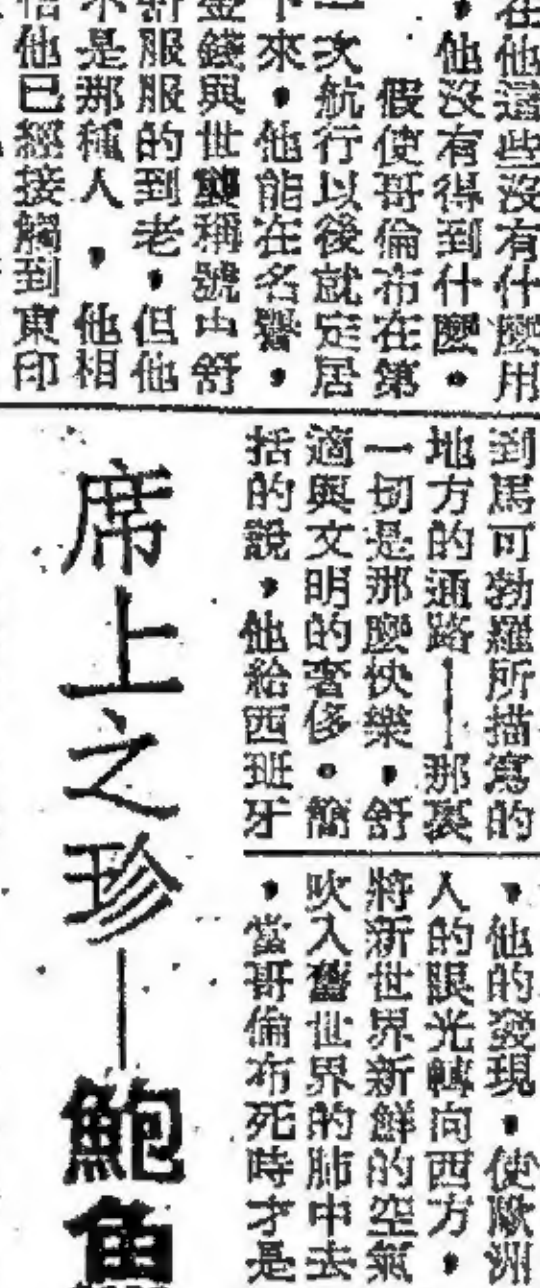 在他這些沒有什麼用
，他沒有得到什麼。
假使哥倫布在第
一次航行以後就定居
下來，他能在名譽，
金錢與世襲稱號中舒
舒服服的到老，但他
不是那種人，他相
信他已經接觸到東印
到馬可勃羅所描寫的
地方的通路——那裏
一切是那麼快樂，舒
適與文明的奢侈。簡
括的說，他給西班牙
，他的發現，使歐洲
人的眼光轉向西方，
將新世界新鮮的空氣
吹入舊世界的肺中去
，當哥倫布死時才是
席上之珍—鮑魚